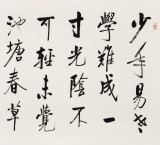 少年易老
學難成一
寸光陰不
可輕未覺
池塘春草